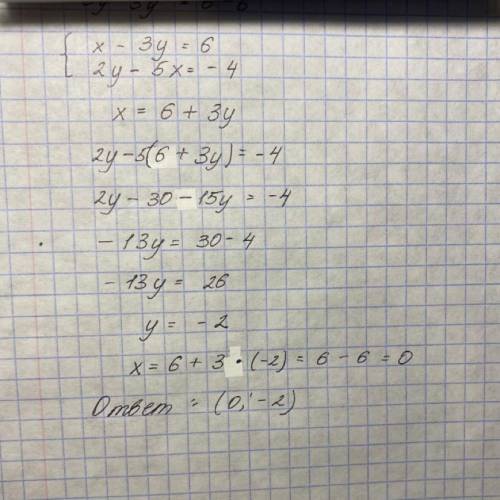 x - 3y = 6
2y - 5x = -4
x = 6 + 3y
2y - 5(6 + 3y) = -4
2y - 30 - 15y = -4
-13y = 30 - 4
-13y = 26
y = -2
x = 6 + 3 · (-2) = 6 - 6 = 0
Ответ : (0; -2)